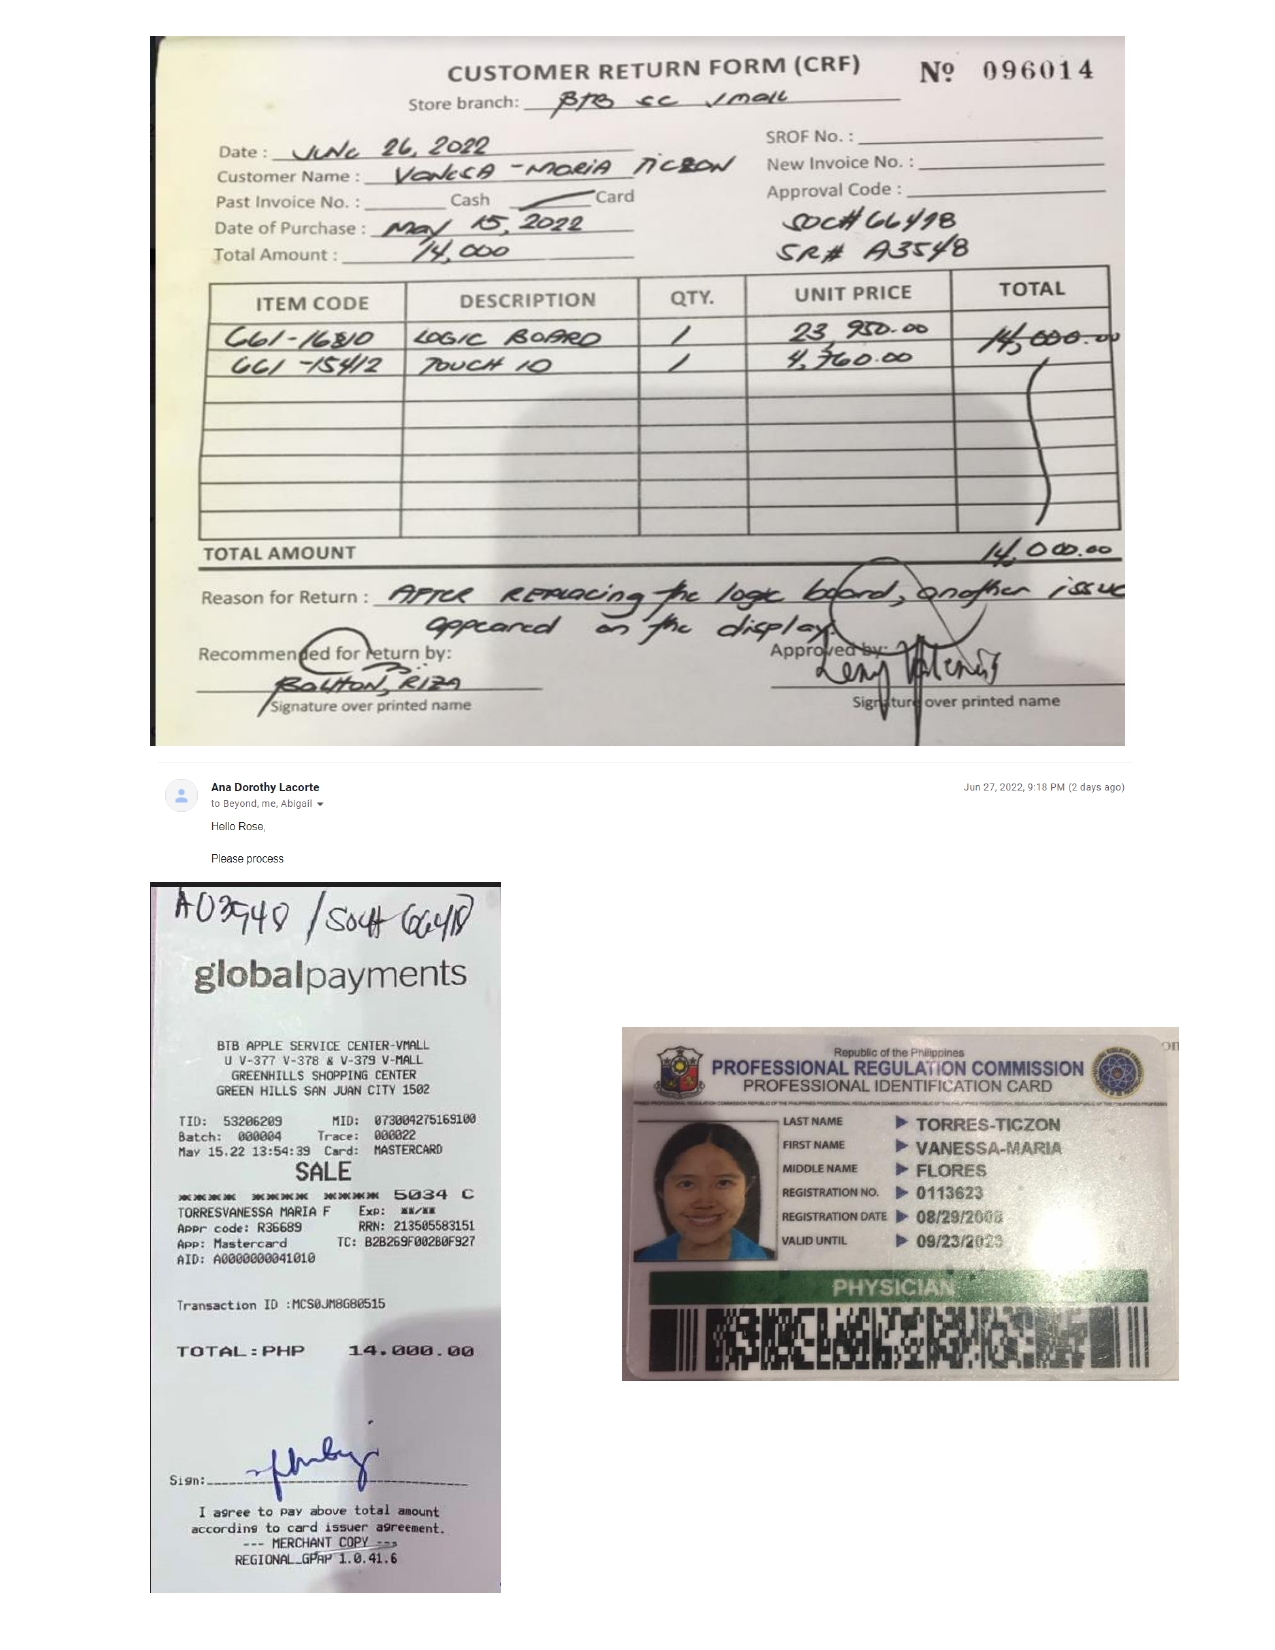 CUSTOMER RETURN FORM (CRF)
Nº 096014
Store branch: BTB SC Vmall
Date : June 26, 2022
SROF No. :
Customer Name : VANESSA -MARIA TICZON
New Invoice No. :
Past Invoice No. : Cash Card
Approval Code :
Date of Purchase : May 15, 2022
SOC# 66498
Total Amount : 14,000
SR# A3548
ITEM CODE DESCRIPTION QTY. UNIT PRICE TOTAL
661-16810 LOGIC BOARD 1 23,950.00 14,000.00
661-15412 TOUCH ID 1 4,760.00
TOTAL AMOUNT 14,000.00
Reason for Return : AFTER REPLACING the logic board, another issue
appeared on the display.
Recommended for return by:
Approved by:
RIZA
Signature over printed name
Signature over printed name
Ana Dorothy Lacorte
Jun 27, 2022, 9:18 PM (2 days ago)
to Beyond, me, Abigail
Hello Rose,
Please process
globalpayments
BTB APPLE SERVICE CENTER-VMALL
U V-377 V-378 & V-379 V-MALL
GREENHILLS SHOPPING CENTER
GREEN HILLS SAN JUAN CITY 1502
TID: 53206209 MID: 073004275169100
Batch: 000004 Trace: 000022
May 15.22 13:54:39 Card: MASTERCARD
SALE
**** **** **** 5034 C
TORRESVANESSA MARIA F Exp: **/**
Appr code: R36689 RRN: 213505583151
App: Mastercard TC: B2B269F002B0F927
AID: A0000000041010
Transaction ID :MCS0JM8G80515
TOTAL:PHP 14,000.00
Sign:
I agree to pay above total amount
according to card issuer agreement.
--- MERCHANT COPY ---
REGIONAL_GPAP 1.0.41.6
Republic of the Philippines
PROFESSIONAL REGULATION COMMISSION
PROFESSIONAL IDENTIFICATION CARD
LAST NAME TORRES-TICZON
FIRST NAME VANESSA-MARIA
MIDDLE NAME FLORES
REGISTRATION NO. 0113623
REGISTRATION DATE 08/29/2008
VALID UNTIL 09/23/2023
PHYSICIAN